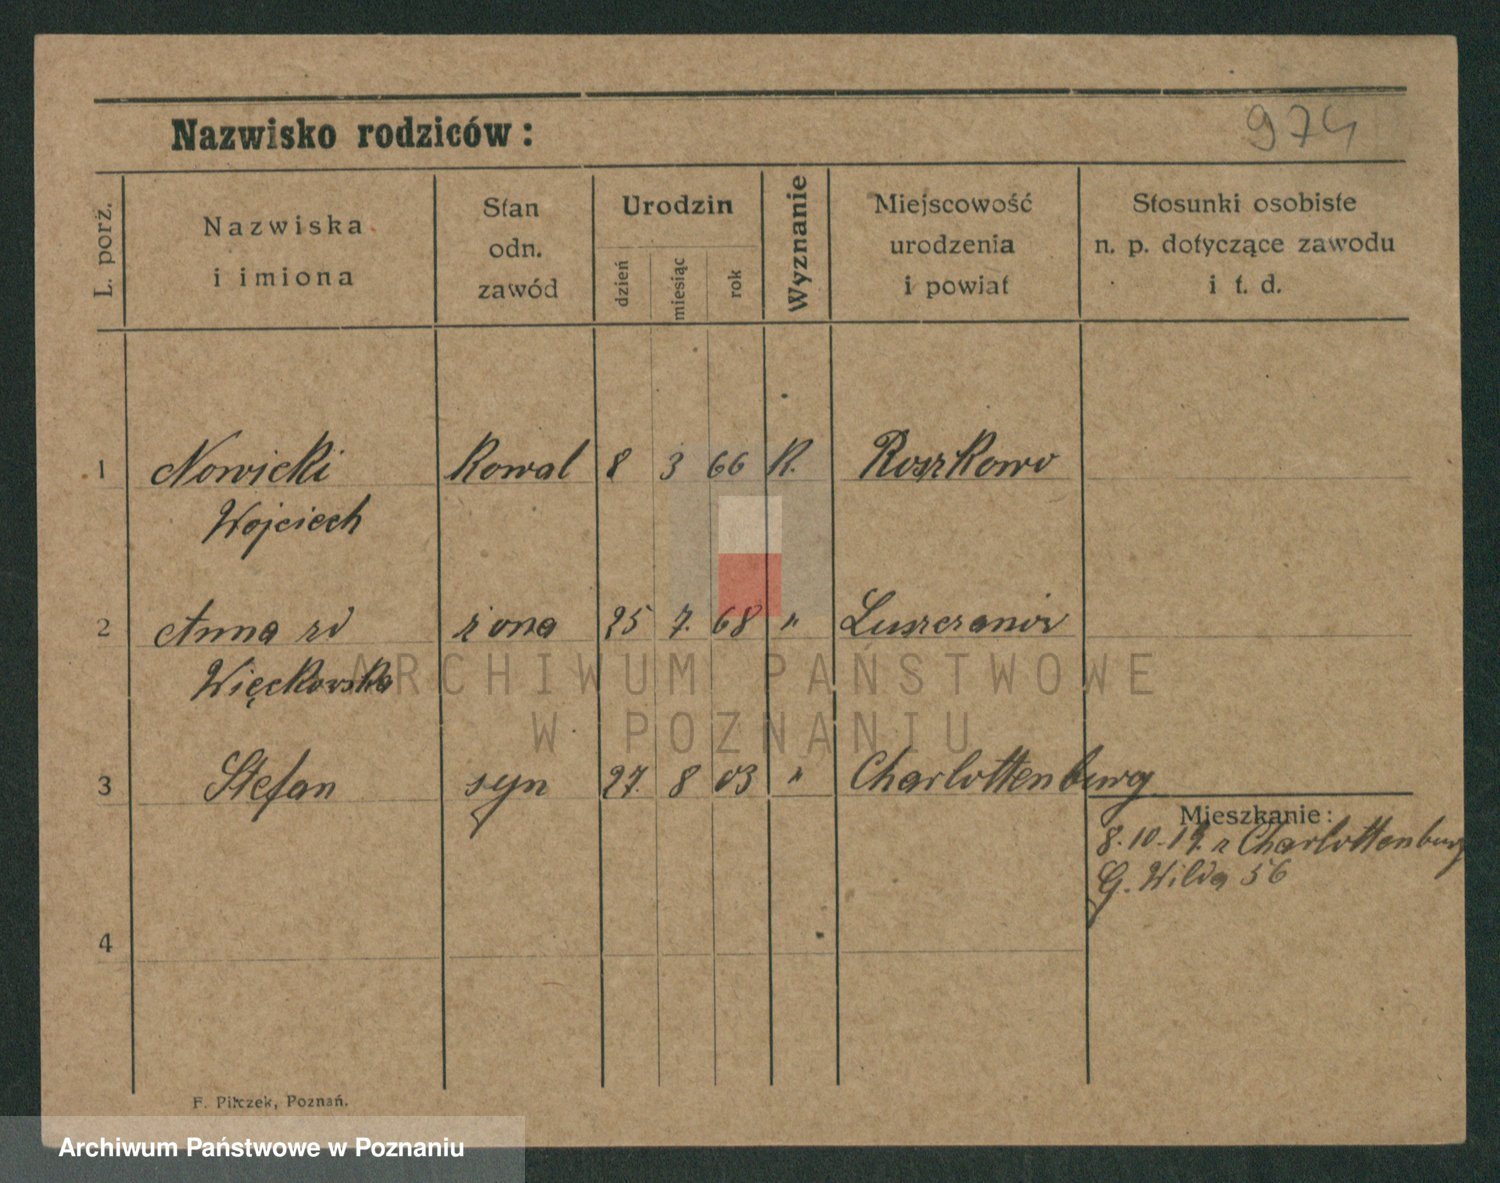 974
Nazwisko rodziców:
L. porz.
Nazwiska
i imiona
Stan
odn.
zawód
Urodzin
dzień
miesiąc
rok
Wyznanie
Miejscowość
urodzenia
i powiat
Stosunki osobiste
n. p. dotyczące zawodu
i t. d.
1 Nowicki Kowal 8 3 66 K. Roszkowo
Wojciech
2 Anna zd żona 25 7. 68 "
Więckowska
ARCHIWUM PAŃSTWOWE
W POZNANIU
3 Stefan syn 27. 8 03 " Charlottenburg
Mieszkanie:
8.10.19. z Charlottenburg
G. Wilda 56
4
F. Pilczek, Poznań.
Archiwum Państwowe w Poznaniu